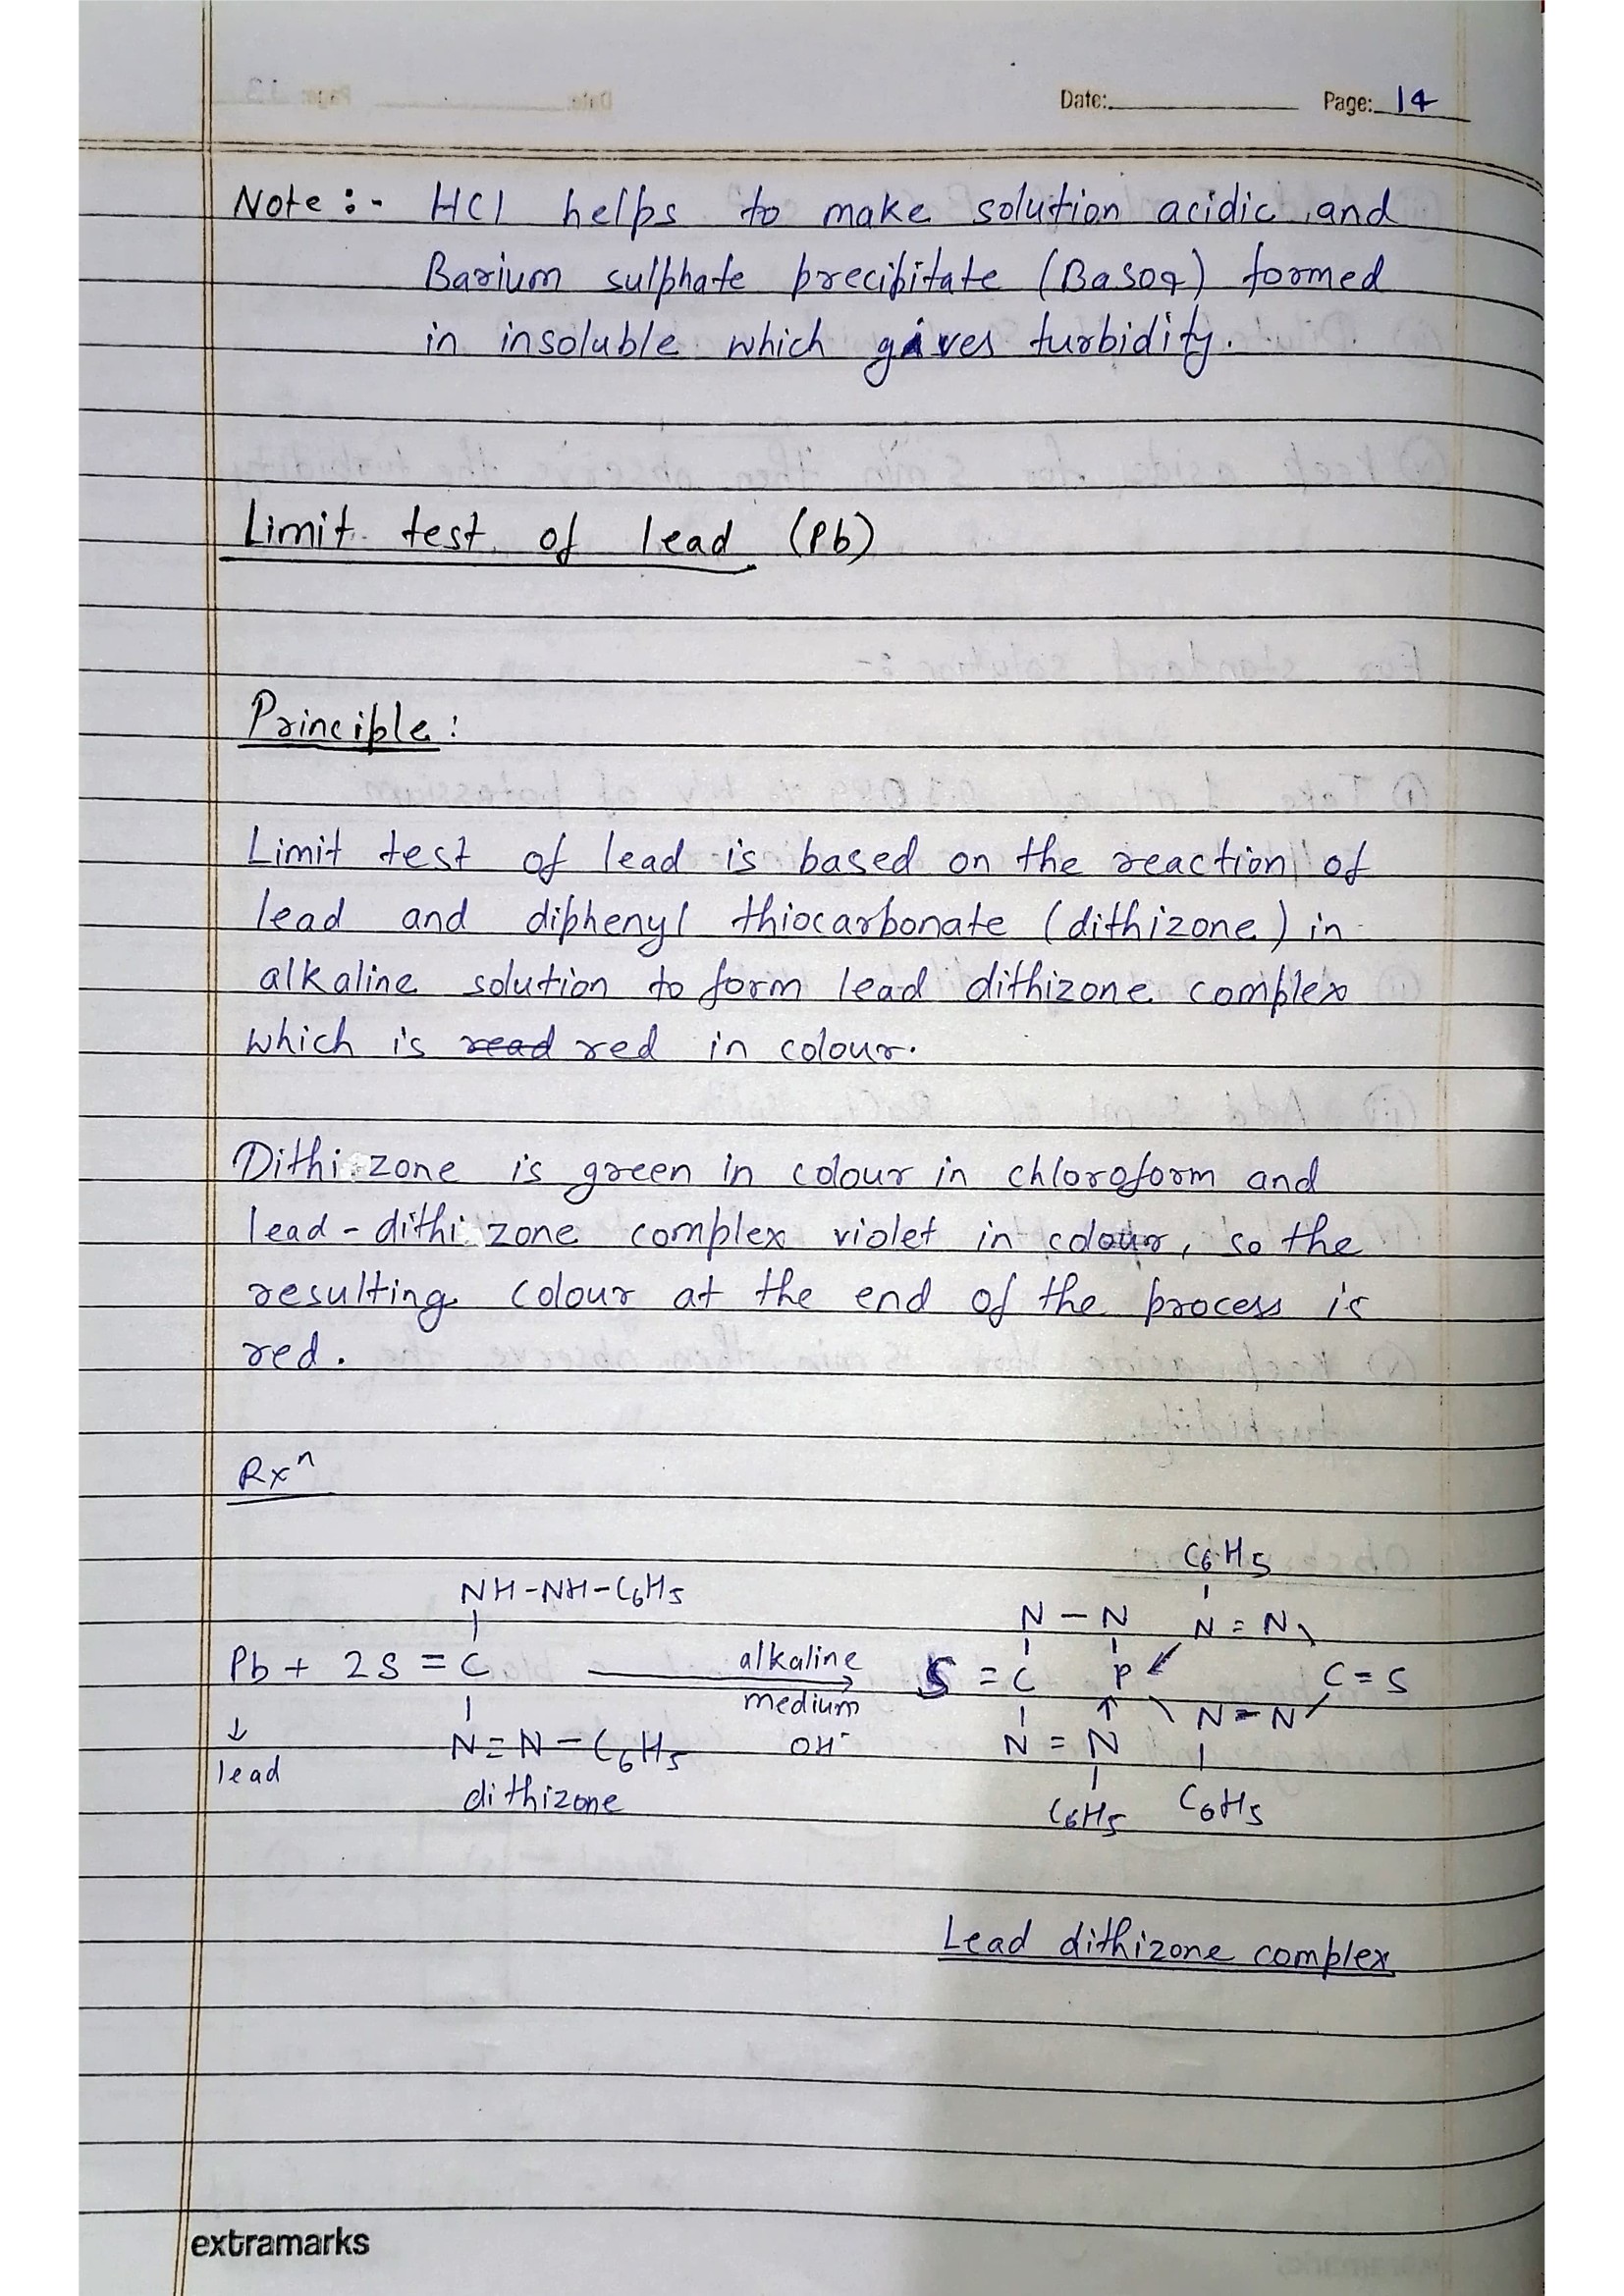 Date: Page: 14
Note :- HCl helps to make solution acidic and
Barium sulphate precipitate (BaSO4) formed
in insoluble which gives turbidity.
Limit test of lead (Pb)
Principle:
Limit test of lead is based on the reaction of
lead and diphenyl thiocarbonate (dithizone) in
alkaline solution to form lead dithizone complex
which is read red in colour.
Dithizone is green in colour in chloroform and
lead-dithizone complex violet in colour, so the
resulting colour at the end of the process is
red.
Rxⁿ
C6H5
NH-NH-C6H5
N - N N = N
Pb + 2S = C alkaline S = C P C = S
medium
↓ N = N - C6H5 OH⁻ N = N N = N
lead
dithizone C6H5 C6H5
Lead dithizone complex
extramarks